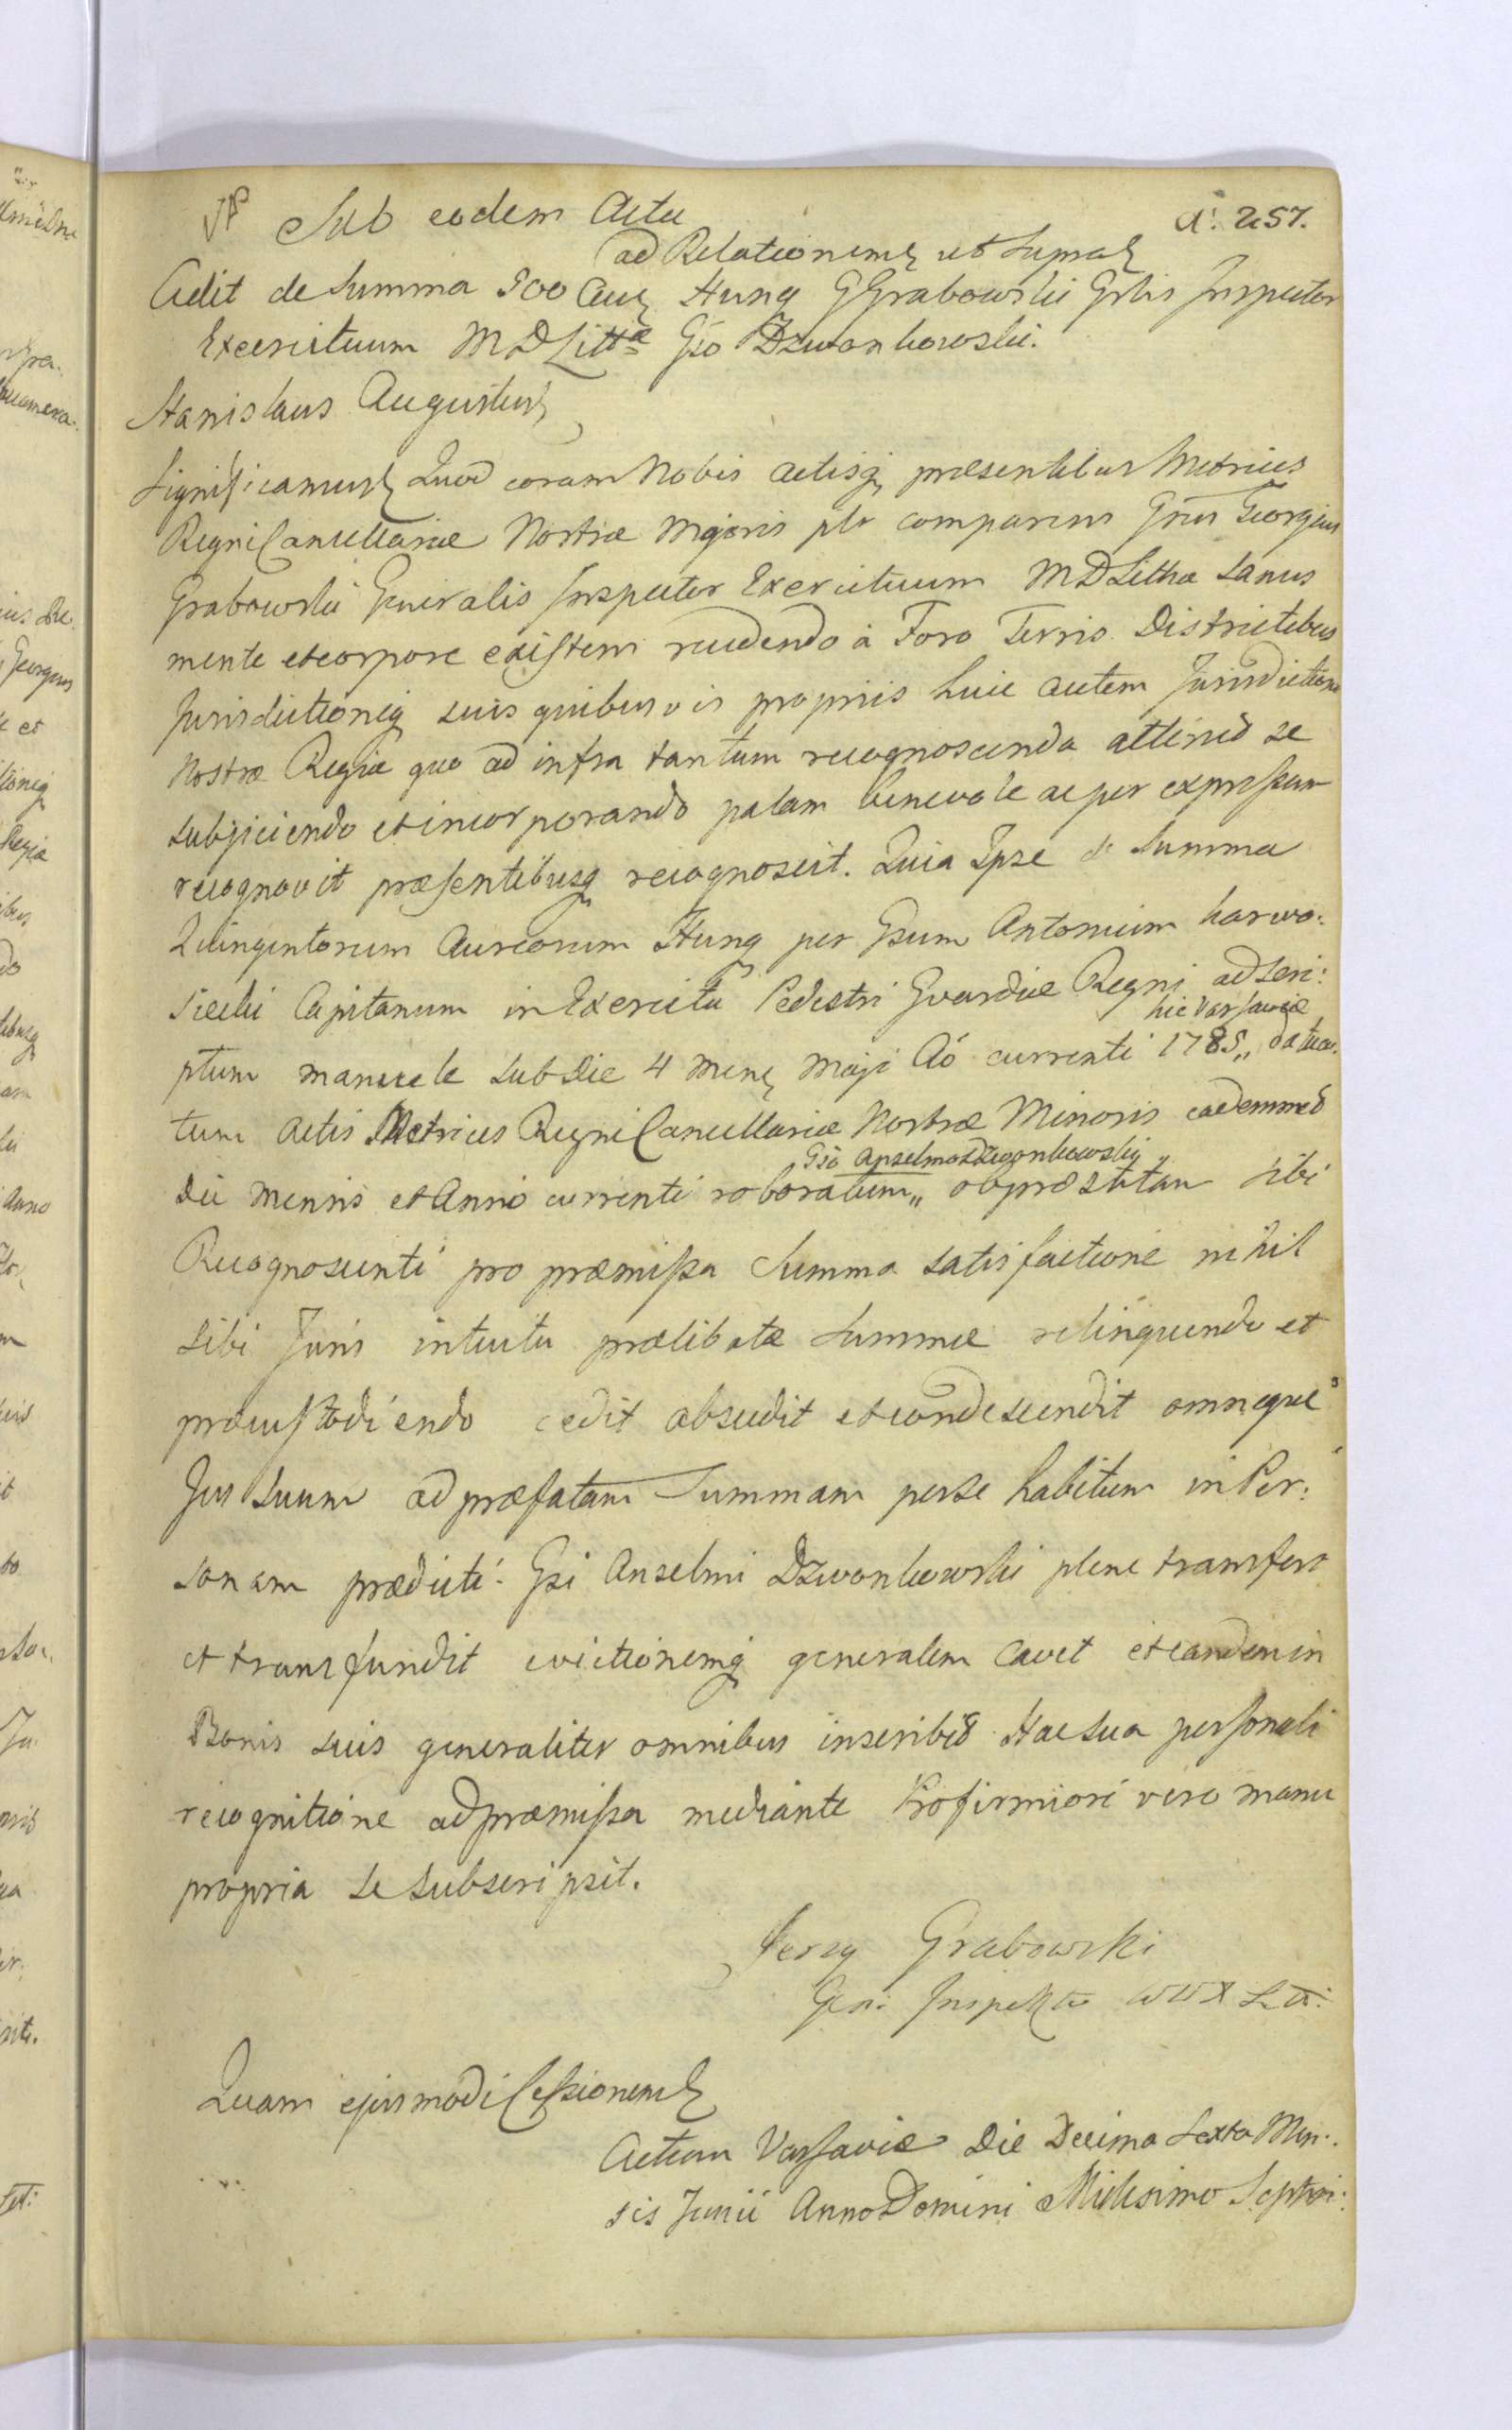 Sub eodem Actu
A. 257.
ad Relationem ut supra
Cedit de Summa 500 Aur Hung G Grabowski Gnlis Inspector
Exercituum MDLittæ Gso Dzwonkowski.
Stanislaus Augustus
Significamus Quod coram Nobis Actisq præsentibus Metrices
Regni Cancellariæ Nostræ Majoris plr comparens Gnsus Georgius
Grabowski Generalis Inspector Exercituum MDLithæ sanus
mente et corpore existens recedendo à Foro Terris Districtibus
Jurisdictioniq suis quibusvis propriis huic autem Jurisdictioni
Nostræ Regiæ quo ad infra tantum recognoscenda attinet se
subjiciendo et incorporando palam benevole ac per expressum
recognovit præsentibusq recognoscit. Quia Ipse de Summa
Quingentorum Aureorum Hung per Gsum Antonium Karwo:
siecki Capitanum in Exercitu Pedestri Gvardiæ Regni adscri:
hic Varsaviæ
ptum manuale sub die 4 mens Maji Ao currenti 1785 „ datum
tum Actis Metrices Regni Cancellariæ Nostræ Minoris eademmet
Gso Anselmo Dzwonkowski
die mensis et Anni currenti roboratum „ ob præstitam sibi
Recognoscenti pro præmissa Summa satisfactione nihil
sibi Juris intuitu prælibatæ Summæ relinquendo et
præcustodiendo cedit abscedit et condescendit omneque
Jus suum ad præfatam Summam per se habitum in Per:
sonam prædicti Gsi Anselmi Dzwonkowski plene transfert
et transfundit evictionemq generalem cavet et eandem in
Bonis suis generaliter omnibus inscribit Hac sua personali
recognitione ad præmissa mediante Pro firmiori vero manu
propria se subscripsit.
Jerzy Grabowski
Gen: Inspektor WWXLit:
Quam ejusmodi Cessionem
Actum Varsaviæ Die Decima Sexta Men:
sis Junii Anno Domini Millesimo Septin: